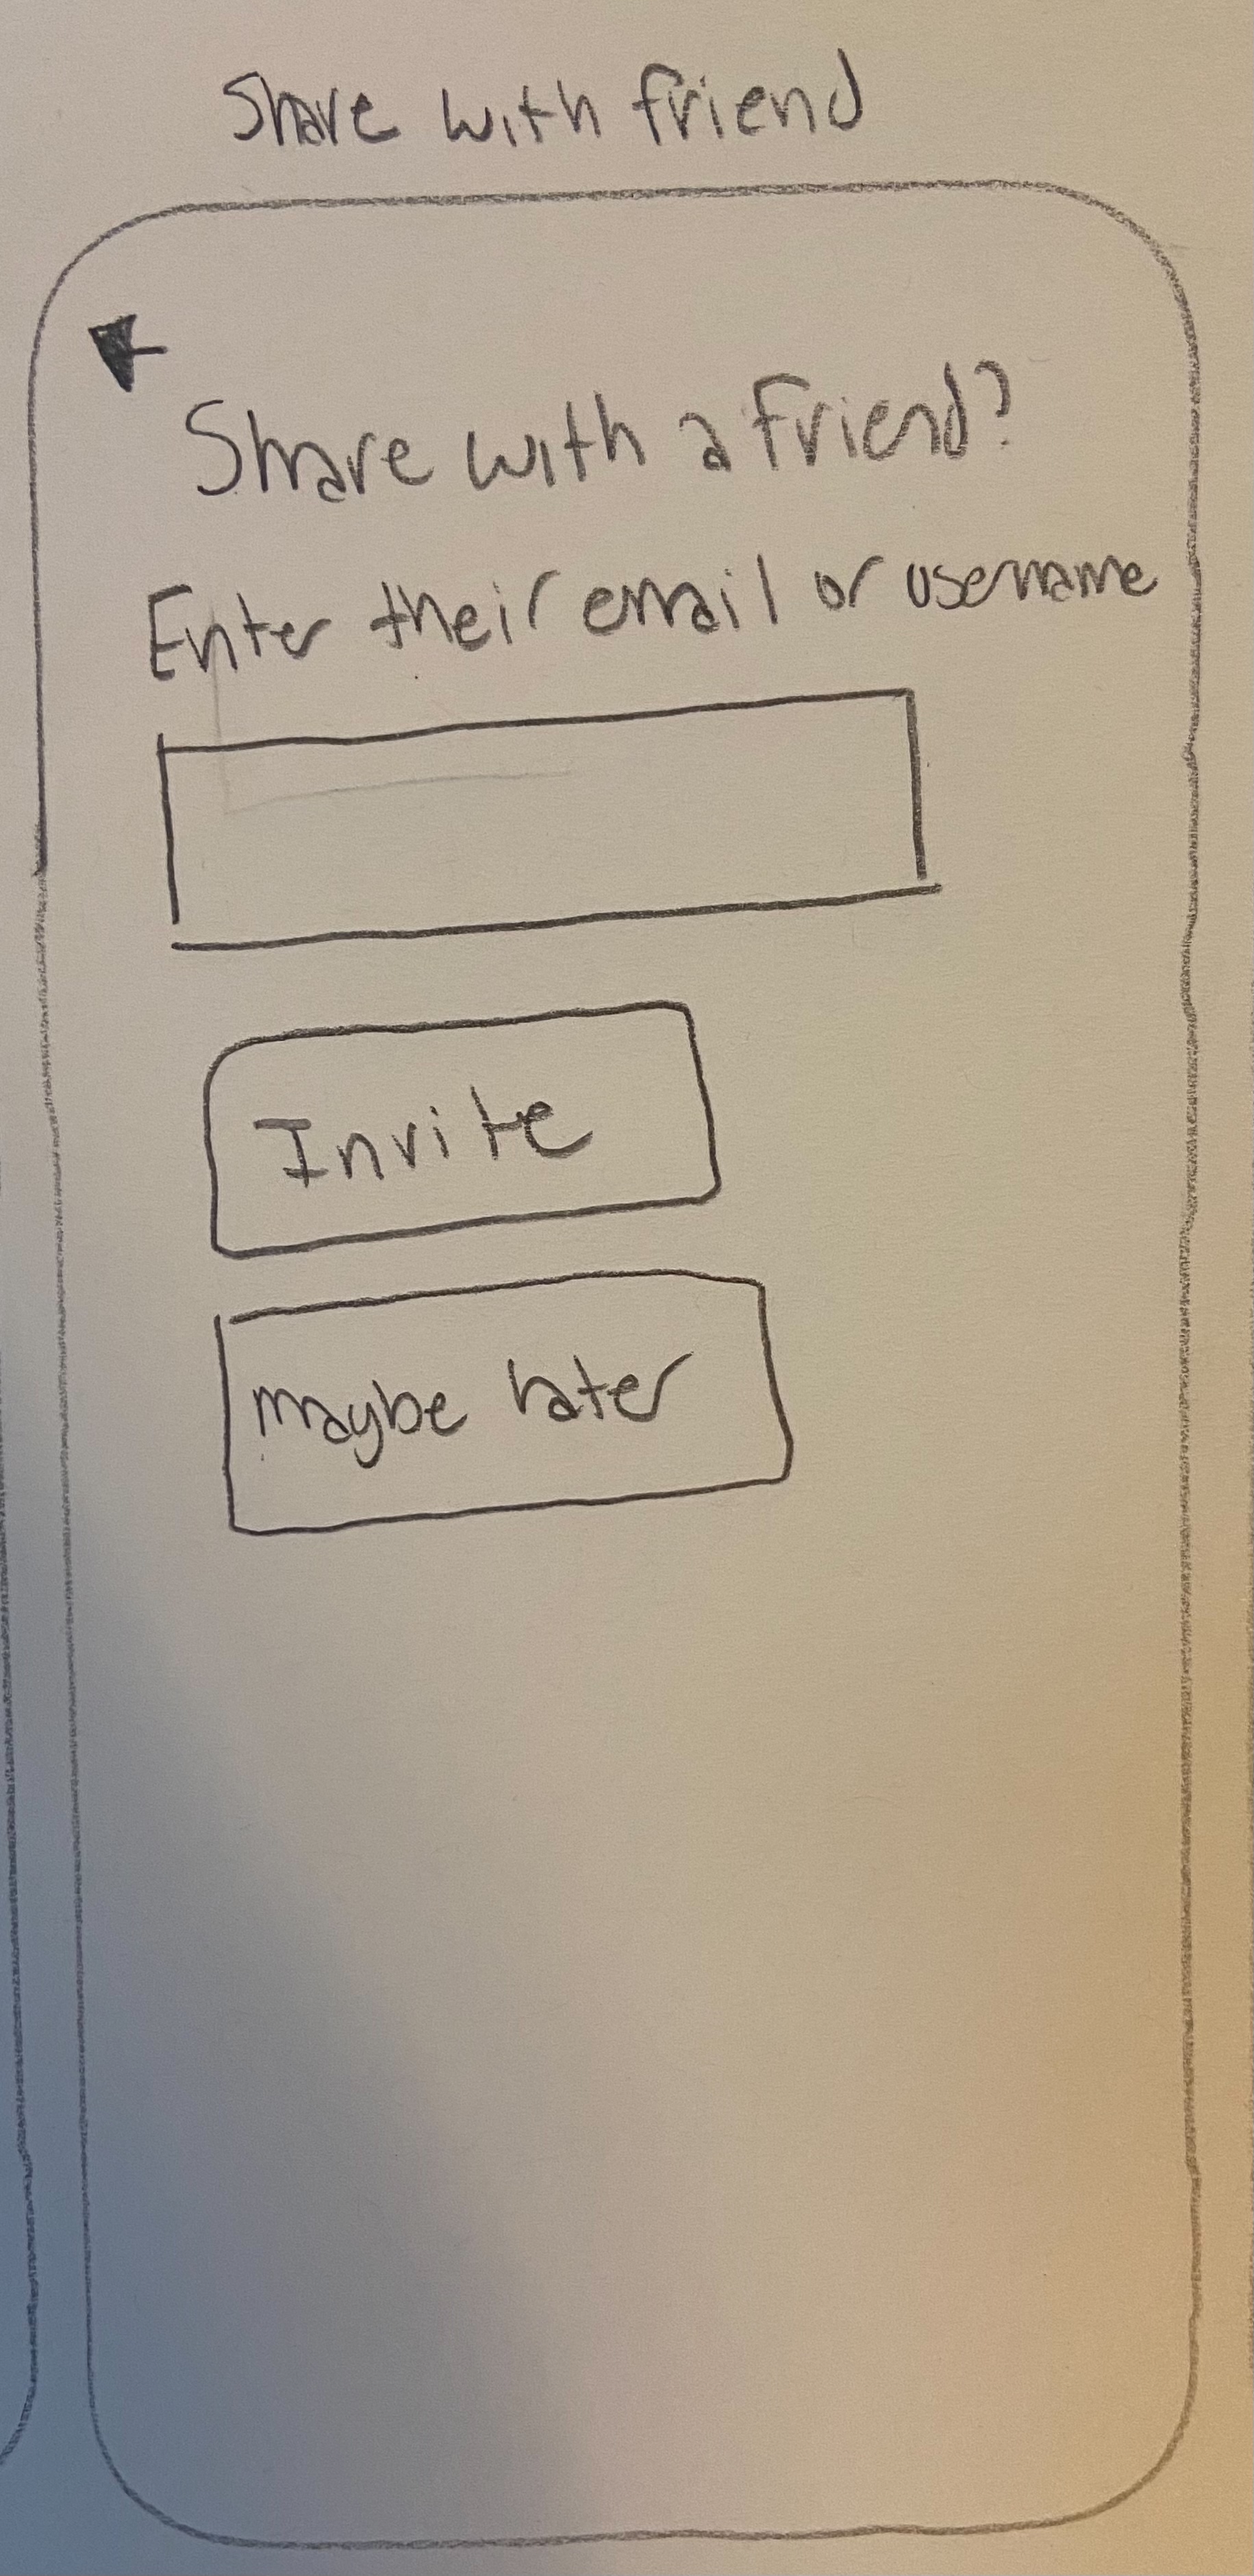 Share with friend
Share with a friend?
Enter their email or username
Invite
maybe later